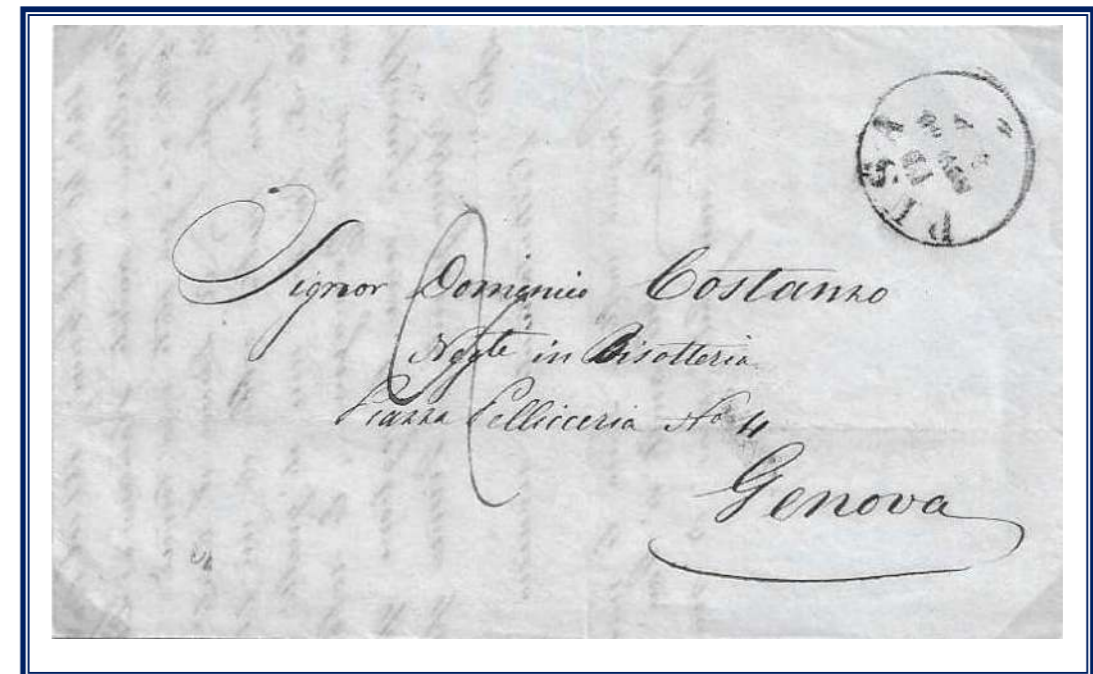 PISA
Signor Domenico Costanzo
Negte in Bisotteria
Piazza Pelliceria No 4
Genova